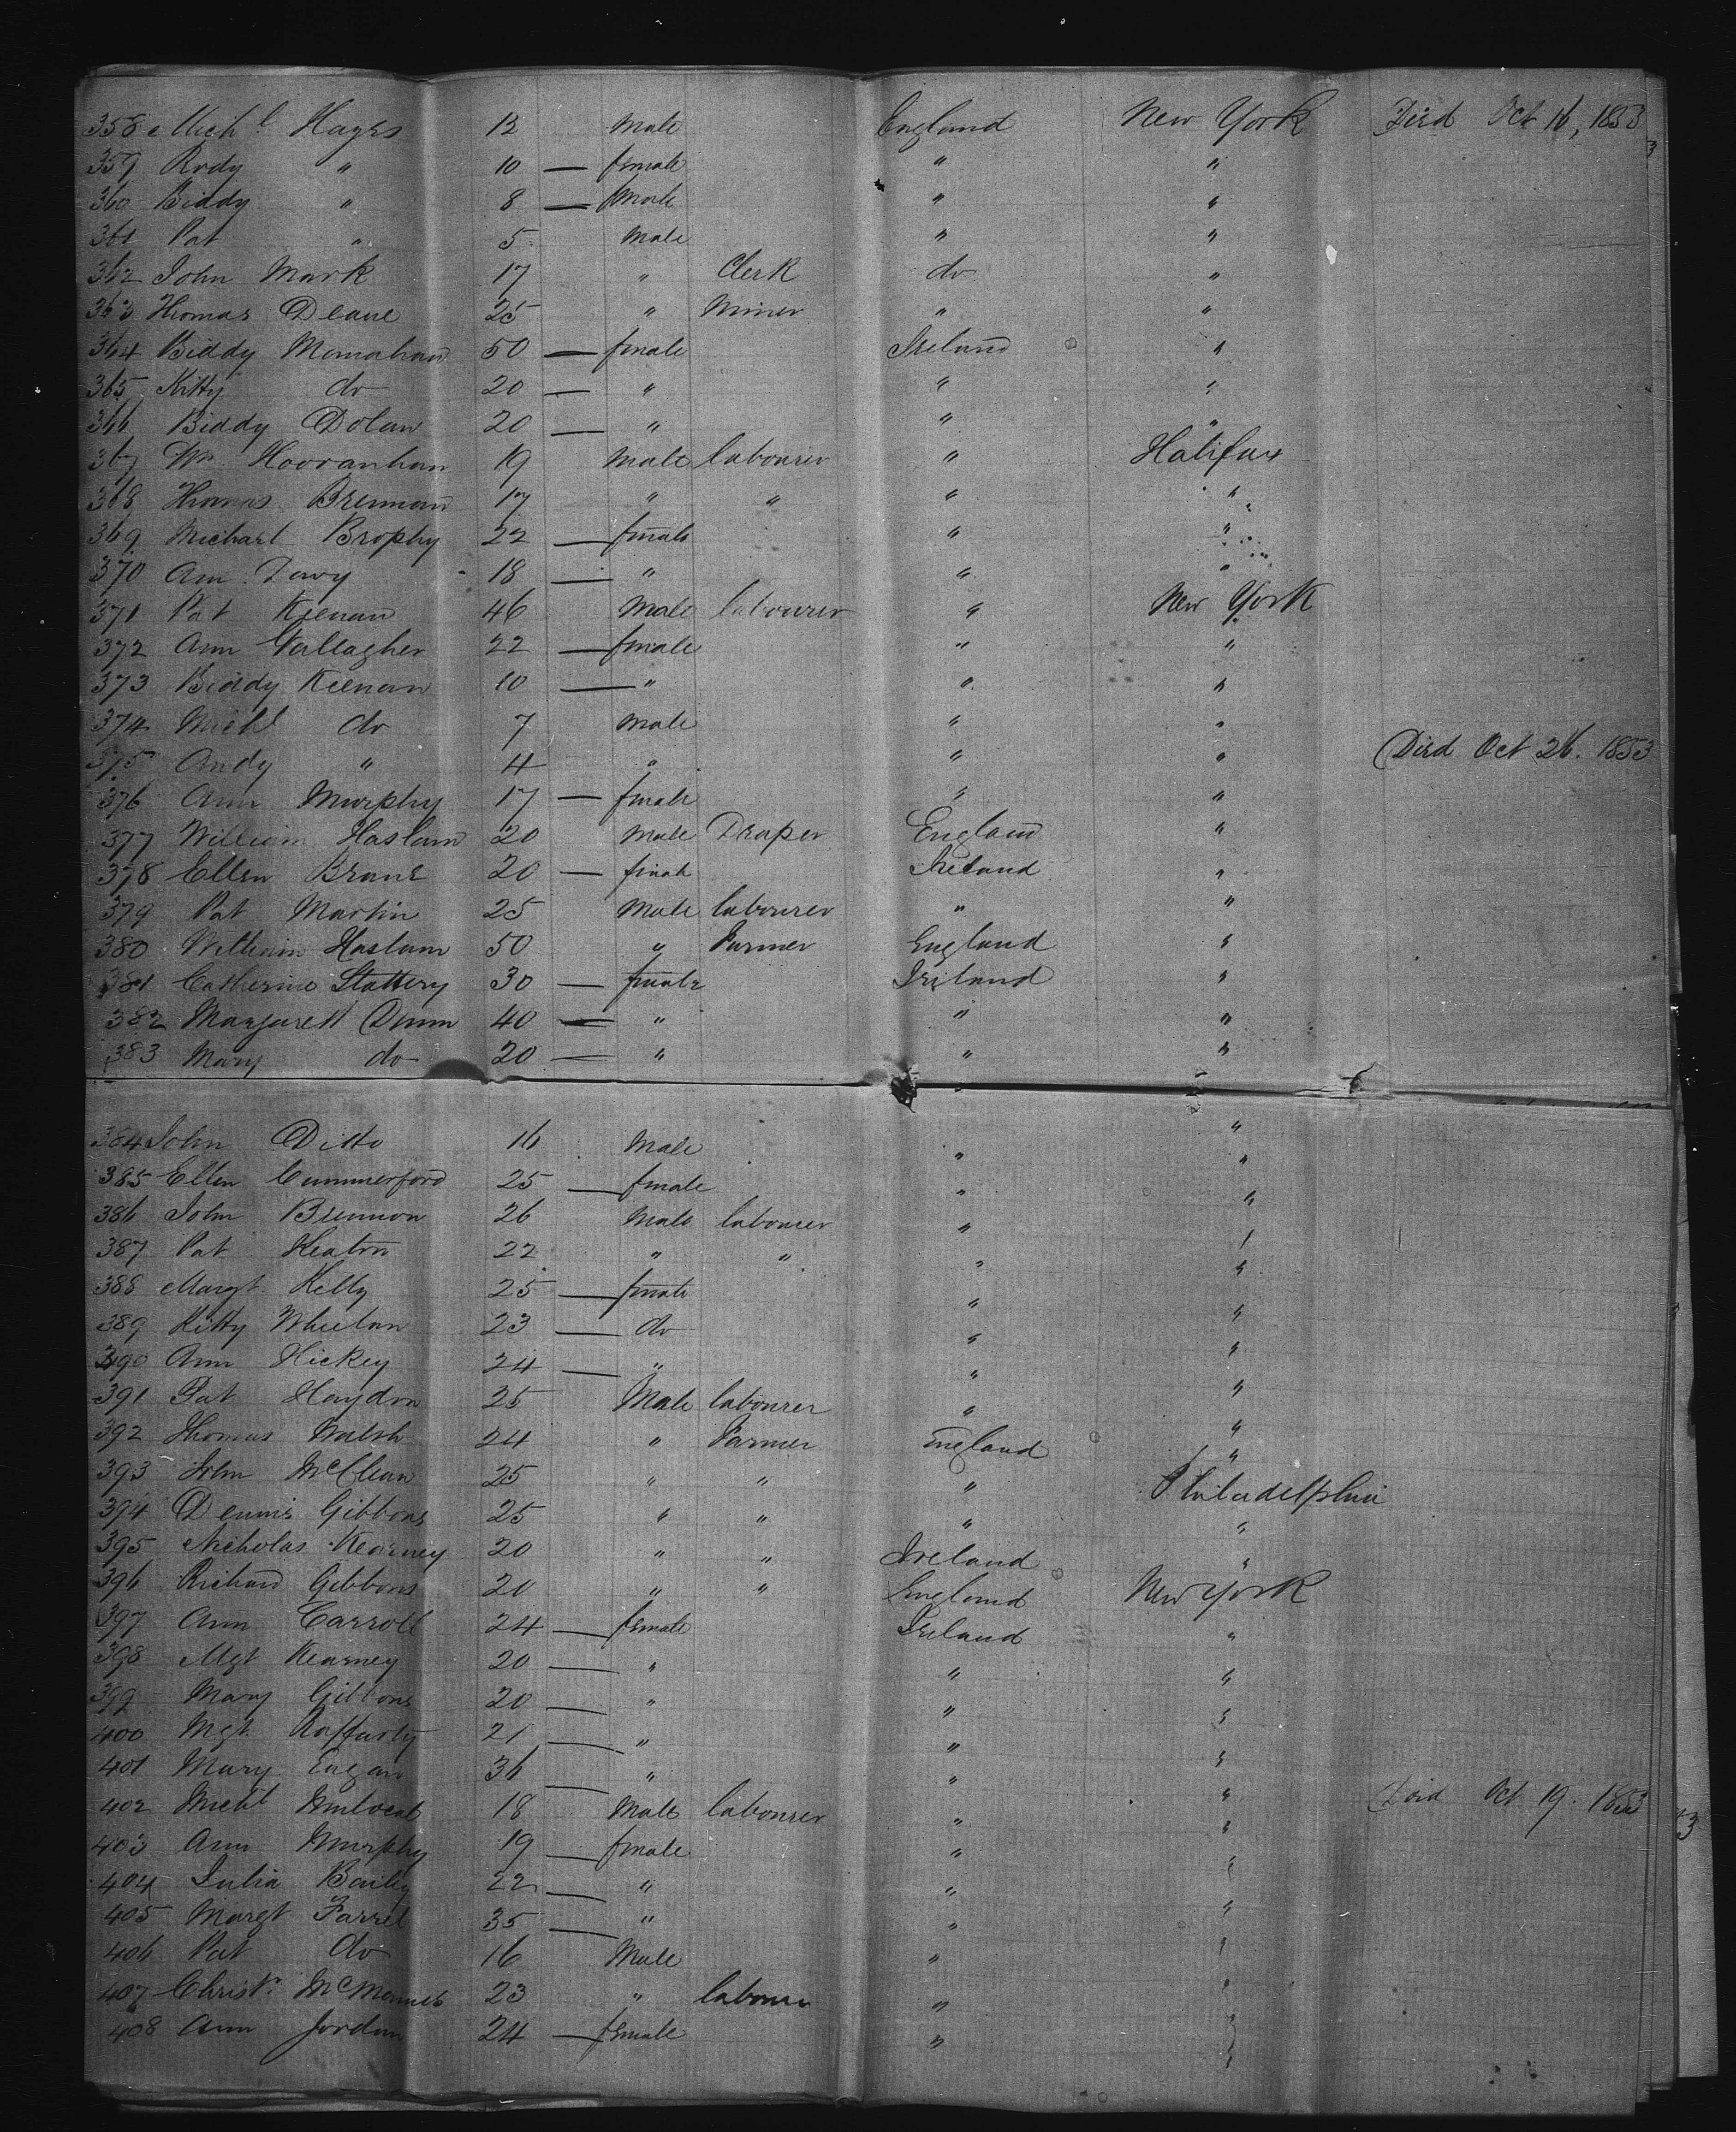 358 Mich.l Hayes 12 Male England New York Died Oct 16, 1853
359 Rody " 10 — female " "
360 Biddy " 8 — Male " "
361 Pat " 5 Male " "
362 John Mark 17 " Clerk do "
363 Thomas Deane 25 " Miner " "
364 Biddy Monahan 50 — female Ireland "
365 Kitty do 20 — " " "
366 Biddy Dolan 20 — " " "
367 Wm Hooranhan 19 Male labourer " Halifax
368 Thomas Brennan 17 " " " "
369 Michael Brophy 22 — female " "
370 Ann 18 — " " "
371 Pat Keenan 46 Male labourer " New York
372 Ann Gallagher 22 — female " "
373 Biddy Keenan 10 — " " "
374 Michl do 7 Male " "
375 Andy " 4 " " " Died Oct 26. 1853
376 Ann Murphy 17 — female " "
377 William Haslam 20 Male Draper England "
378 Ellen 20 — female Ireland "
379 Pat Martin 25 Male labourer " "
380 William Haslam 50 " Farmer England "
381 Catherine Slattery 30 — female Ireland "
382 Margarett Dunn 40 — " " "
383 Mary do 20 — " " "
384 John Ditto 16 Male " "
385 Ellen Cummerford 25 — female " "
386 John Brennon 26 Male labourer " "
387 Pat Heaton 22 " " " "
388 Margt Kelly 25 — female " "
389 Kitty Whelan 23 — do " "
390 Ann Hickey 24 — " " "
391 Pat Haydon 25 Male labourer " "
392 Thomas Walsh 24 " Farmer England "
393 John McClean 25 " " " Philadelphia
394 Dennis Gibbons 25 " " " "
395 Nicholas Kearney 20 " " Ireland "
396 Richard Gibbons 20 " " England New York
397 Ann Carroll 24 — female Ireland "
398 Mgt Kearney 20 — " " "
399 Mary Gibbons 20 — " " "
400 Mgt Raffarty 21 — " " "
401 Mary Eagan 36 — " " "
402 Michl 18 Male labourer " " Died Oct 19. 1853
403 Ann Murphy 19 — female " "
404 Julia Baily 22 — " " "
405 Margt Farrel 35 — " " "
406 Pat do 16 Male " "
407 Christr. McManus 23 " labourer " "
408 Ann Jordan 24 — female " "